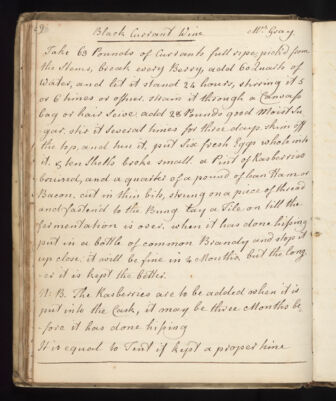 Black Currant Wine Mrs Gray
Take 63 Pounds of Currants full ripe, pick'd from
the Stems, break every Berry, add 60 Quarts of
Water, and let it stand 24 hours, stirring it 5
or 6 times or oftner. strain it through a Canvass
bag or hair Seive. add 28 Pounds good Moist Su
gar. stir it several times for three days. skim off
the top, and tun it, put six fresh Eggs whole into
it. & ten Shells broke small. a Pint of Rasberries
bruised, and a quarter of a pound of lean Ham or
Bacon, cut in thin bits, strung on a piece of thread
and fasten'd to the Bung lay a Tile on till the
fermentation is over. when it has done hissing
put in a bottle of common Brandy and stop it
up close. it will be fine in 4 Months. but the long
er it is kept the better.
N: B. The Rasberries are to be added when it is
put into the Cask, it may be three Months be
fore it has done hissing
It is equal to Tent if kept a proper time